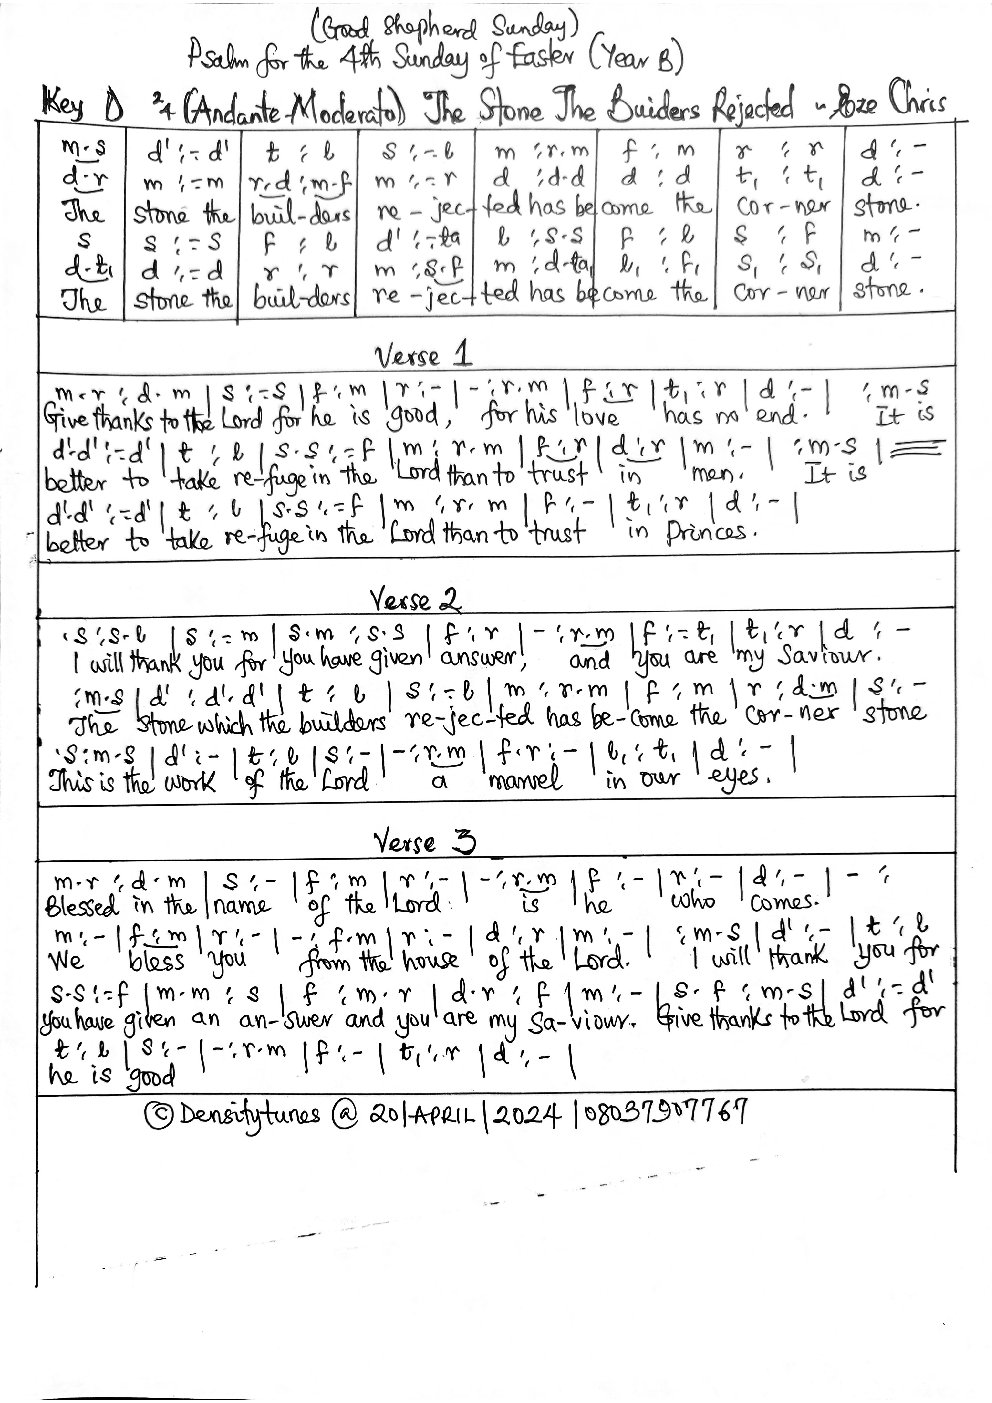 (Good Shepherd Sunday)
Psalm for the 4th Sunday of Easter (Year B)
Key D 2/4 (Andante-Moderato) The Stone The Buiders Rejected - Eze Chris
m.s | d' :- d' | t : l | s :- l | m : r.m | f : m | r : r | d :-
d.r | m :- m | r.d : m.f | m :- r | d : d.d | d : d | t₁ : t₁ | d :-
The | stone the | buil-ders | re-jec-ted has become the | cor-ner | stone.
s | s :- s | f : l | d' :- ta | l : s.s | f : l | s : f | m :-
d.t₁ | d :- d | r : r | m : s.f | m : d.ta₁ | l₁ : f₁ | s₁ : s₁ | d :-
The | stone the | buil-ders | re-jec-ted has become the | cor-ner | stone.
Verse 1
m.r : d.m | s :- s | f : m | r :- | - : r.m | f : r | t₁ : r | d :- | : m.s
Give thanks to the Lord for he is good, for his love has no end. It is
d'.d' :- d' | t : l | s.s :- f | m : r.m | f : r | d : r | m :- | : m.s |
better to take re-fuge in the Lord than to trust in men. It is
d'.d' :- d' | t : l | s.s :- f | m : r.m | f :- | t₁ : r | d :- |
better to take re-fuge in the Lord than to trust in Princes.
Verse 2
.s : s.l | s :- m | s.m : s.s | f : r | - : r.m | f :- t₁ | t₁ : r | d :-
I will thank you for you have given answer, and you are my Saviour.
: m.s | d' : d'.d' | t : l | s :- l | m : r.m | f : m | r : d.m | s :-
The stone which the builders re-jec-ted has be-come the cor-ner stone
.s : m.s | d' :- | t : l | s :- | - : r.m | f.r :- | l₁ : t₁ | d :- |
This is the work of the Lord a marvel in our eyes.
Verse 3
m.r : d.m | s :- | f : m | r :- | - : r.m | f :- | r :- | d :- | - :
Blessed in the name of the Lord. is he who comes.
m :- | f : m | r :- | - : f.m | r :- | d : r | m :- | : m.s | d' :- | t : l
We bless you from the house of the Lord. I will thank you for
s.s :- f | m.m : s | f : m.r | d.r : f | m :- | s.f : m.s | d' :- d'
you have given an an-swer and you are my Sa-viour. Give thanks to the Lord for
t : l | s :- | - : r.m | f :- | t₁ : r | d :- |
he is good
© Densitytunes @ 20|APRIL|2024|08037907767